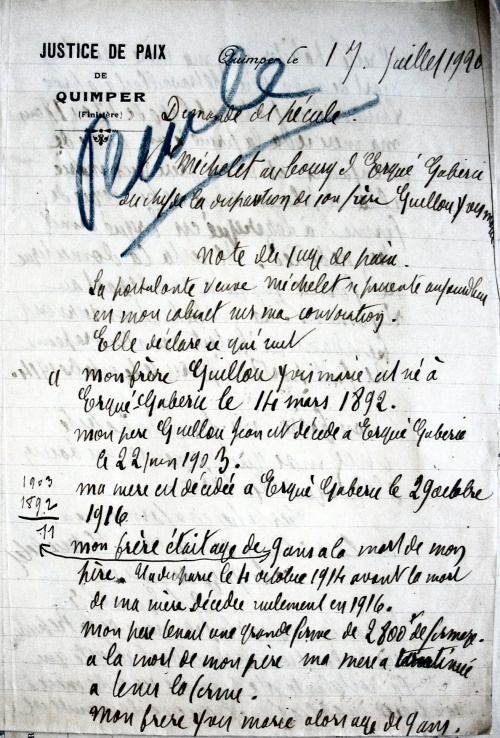 JUSTICE DE PAIX
DE
QUIMPER
(Finistère)
Quimper le 17 juillet 1920
Demande de pécule.
pécule
Michelet au bourg d'Ergué Gaberic
du chef de la disparition de son frère Guillou Yves marie
Note du juge de paix.
La postulante veuve Méchelet se présente aujourd'hui
en mon cabinet sur ma convocation.
Elle déclare ce qui suit
mon frère Guillou Yves marie est né à
Ergué-Gaberic le 14 mars 1892.
mon père Guillou Jean est décédé à Ergué Gaberic
le 22 juin 1903.
ma mère est décédée à Ergué Gaberic le 29 octobre
1916
1903
1892
11
mon frère était âgé de 9 ans à la mort de mon
père. Il a disparu le 4 octobre 1914 avant la mort
de ma mère décédée seulement en 1916.
mon père tenait une grande ferme de 2800f de fermage.
à la mort de mon père ma mère a continué
à tenir la ferme.
mon frère Yves marie alors âgé de 9 ans.